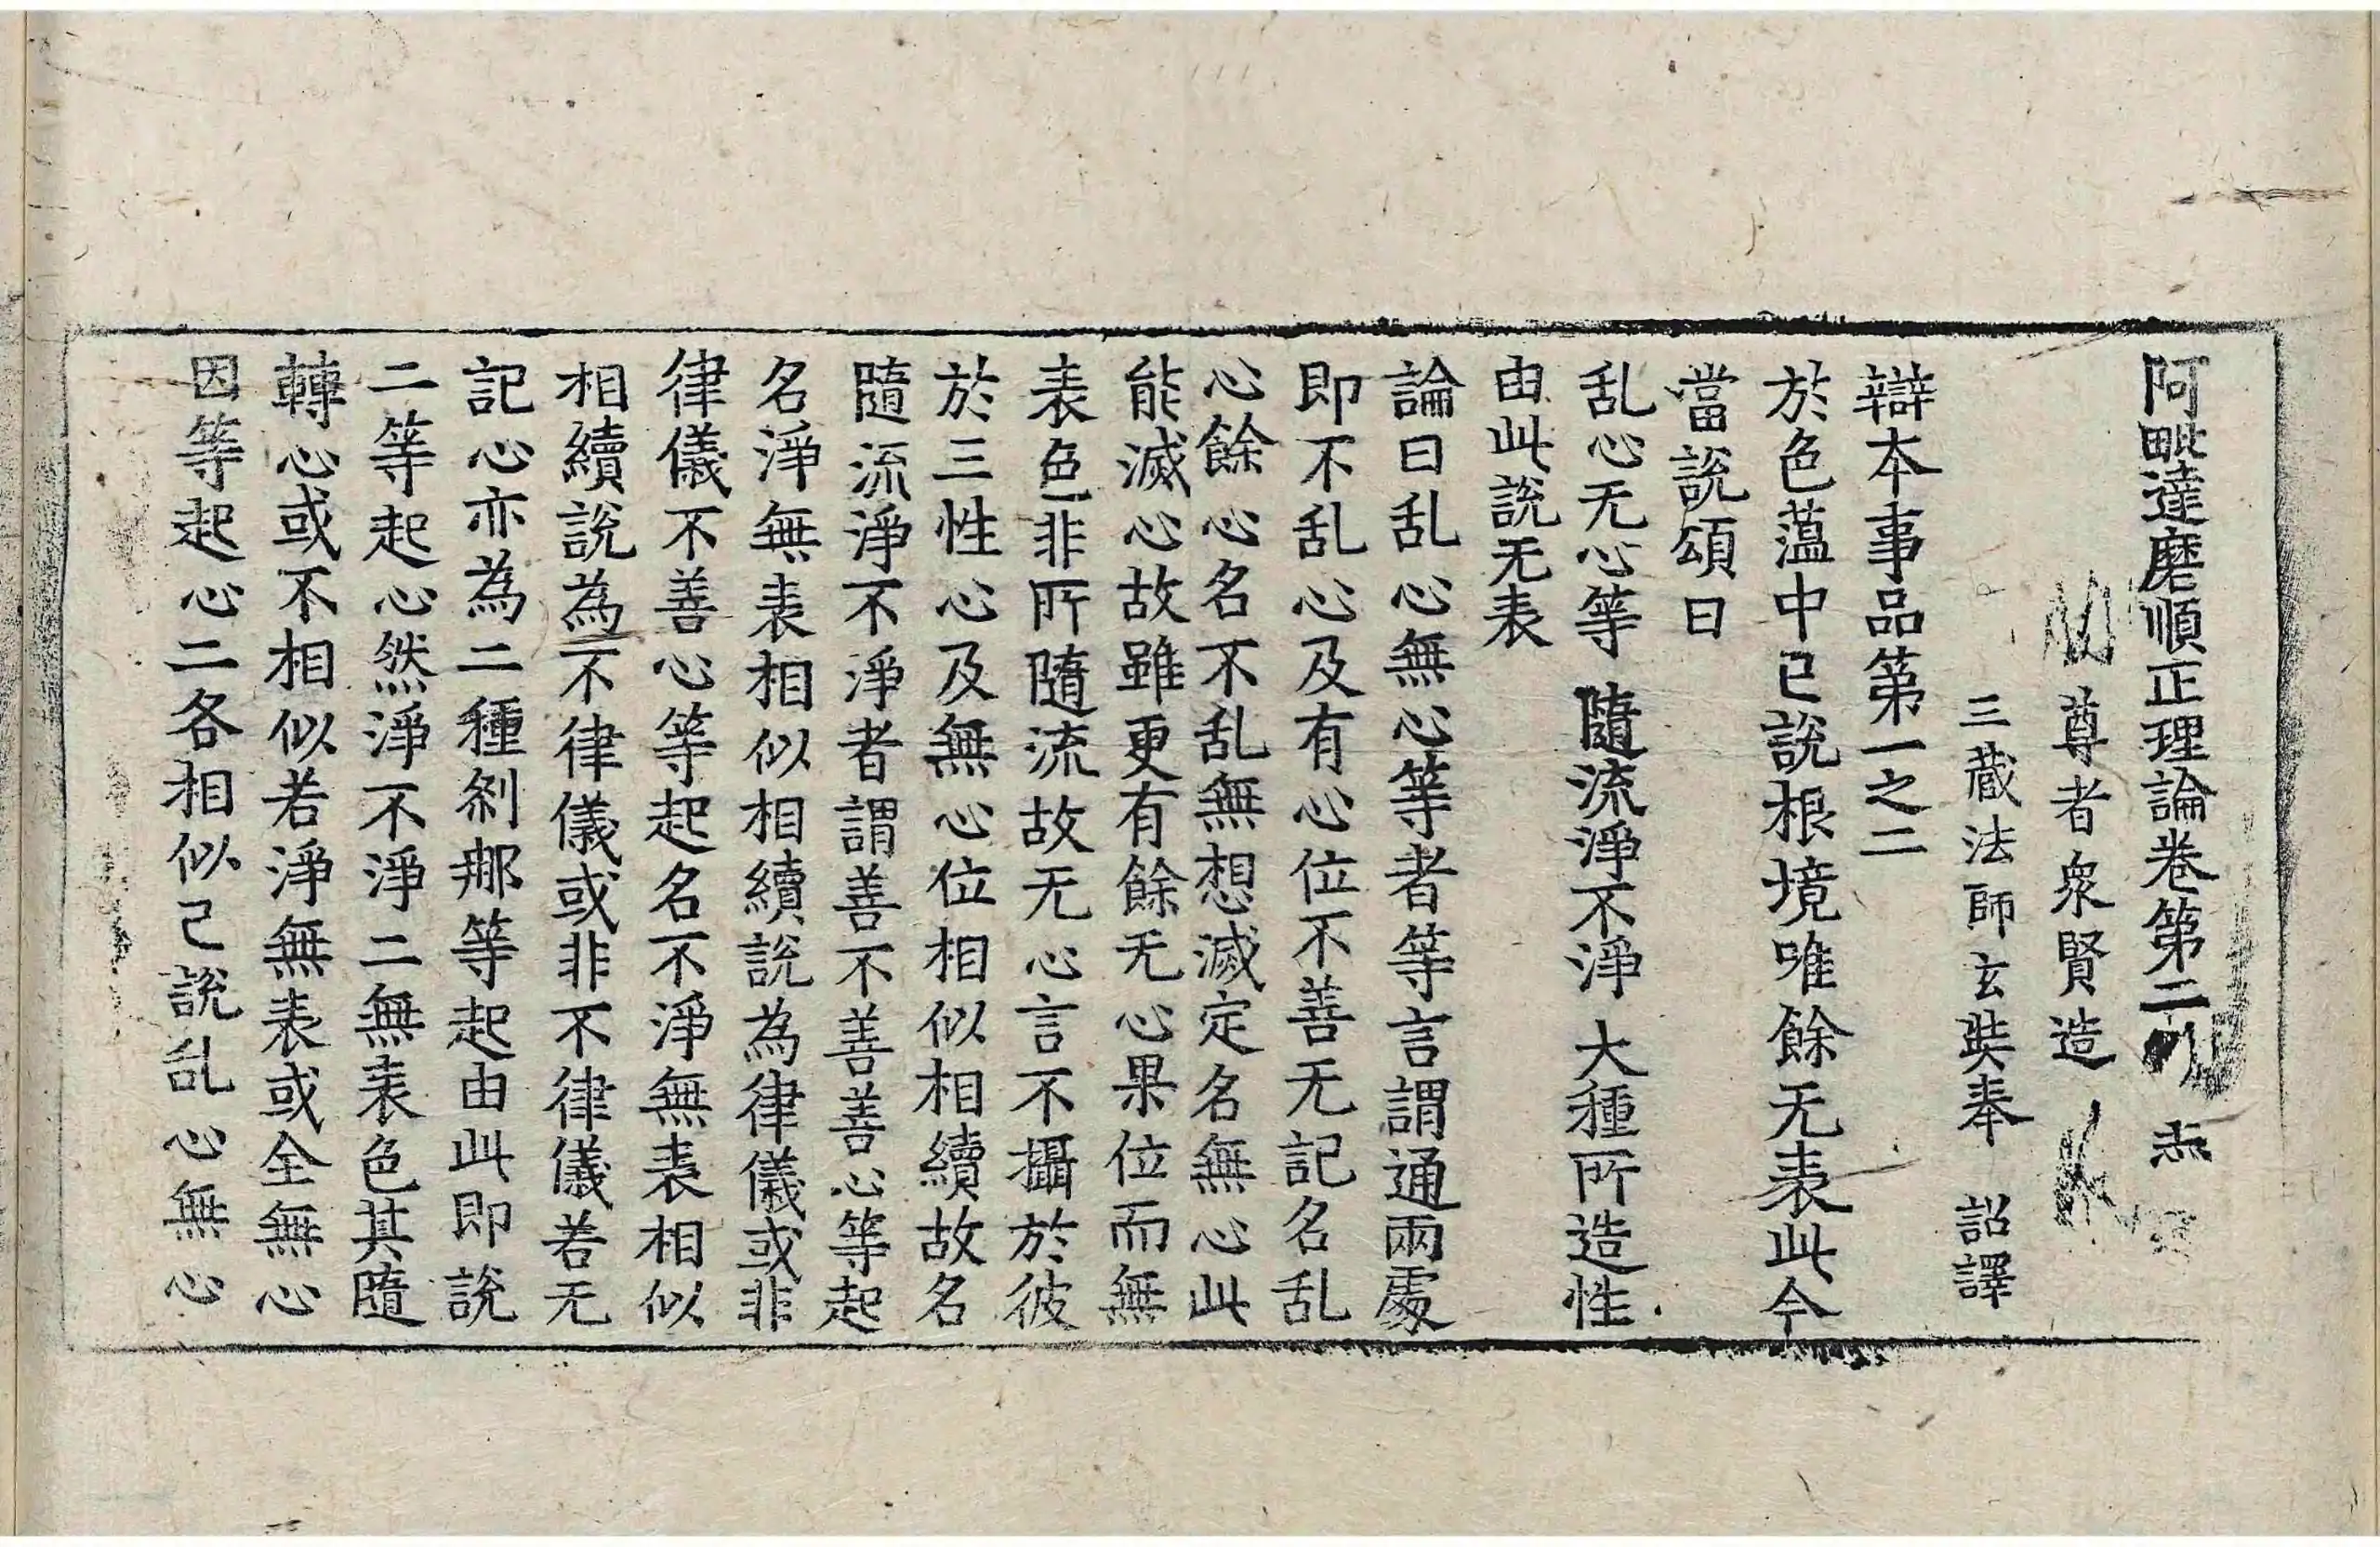 阿毗達磨順正理論卷第二
尊者衆賢造
三藏法師玄奘奉 詔譯
辯本事品第一之二
於色蕴中已說根境唯餘无表此今
當說頌曰
乱心无心等 隨流淨不淨 大種所造性
由此說无表
論曰乱心無心等者等言謂通兩處
即不乱心及有心位不善无記名乱
心餘心名不乱無想滅定名無心此
能滅心故雖更有餘无心果位而無
表色非所隨流故无心言不攝於彼
於三性心及無心位相似相續故名
隨流淨不淨者謂善不善善心等起
名淨無表相似相續說為律儀或非
律儀不善心等起名不淨無表相似
相續說為不律儀或非不律儀若无
記心亦為二種剎那等起由此即說
二等起心然淨不淨二無表色其隨
轉心或不相似若淨無表或全無心
因等起心二各相似已說乱心無心